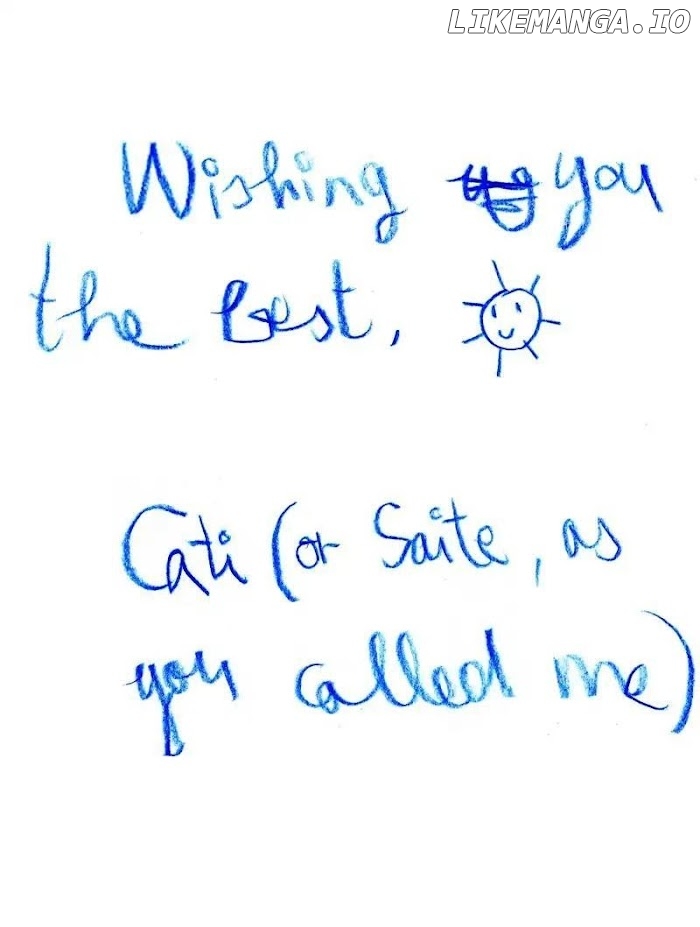 LIKEMANGA.IO
Wishing you
the best,
Cati (or Saite, as
you called me)